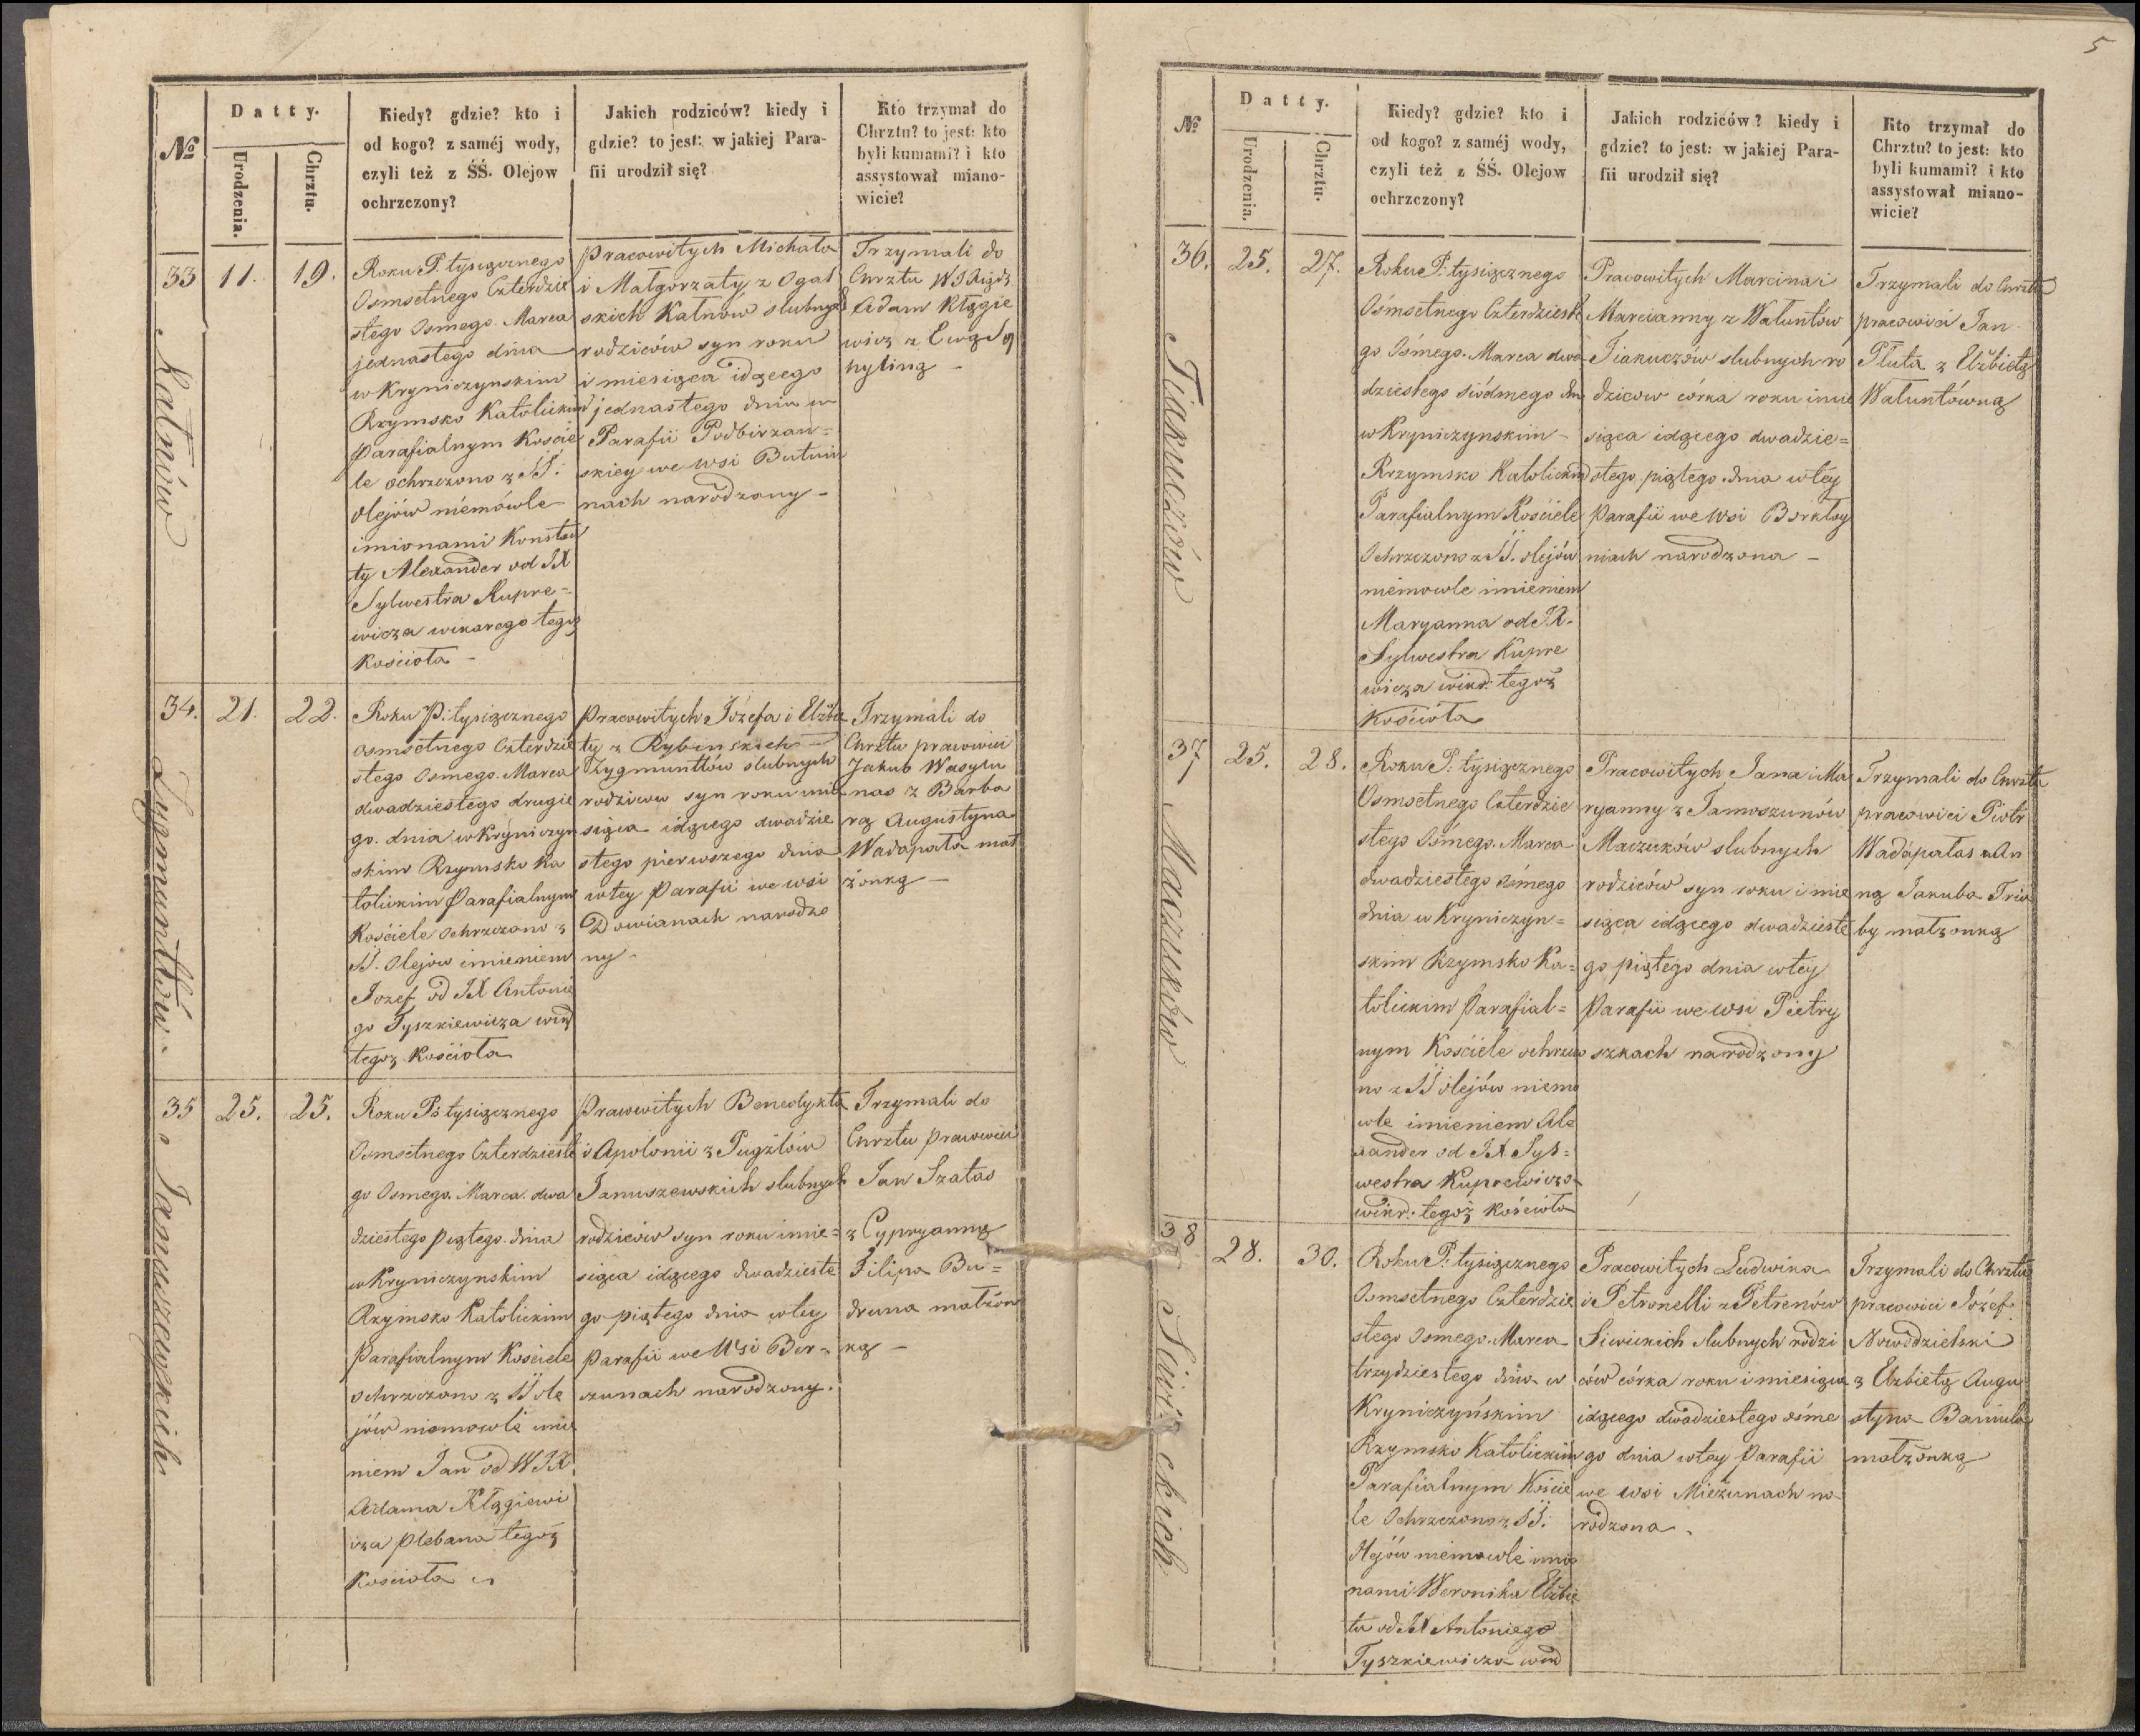 №
Datty.
Urodzenia.
Chrztu.
Kiedy? gdzie? kto i
od kogo? z saméj wody,
czyli też z ŚŚ. Olejow
ochrzczony?
Jakich rodziców? kiedy i
gdzie? to jest: w jakiej Para-
fii urodził się?
Kto trzymał do
Chrztu? to jest: kto
byli kumami? i kto
assystował miano-
wicie?
33
Katnów
11.
19.
Roku P. tysiącznego
Osmsetnego Czterdzie
stego Osmego. Marca
jednastego dnia
w Kryniczynskim
Rzymsko Katolickim
Parafialnym Koscie
le ochrzczono z SS.
Olejów niémówle
imionami Konstan
ty Alexander od JX
Sylwestra Kupre-
wicza wikarego tegoż
Kościoła -
Pracowitych Michała
i Małgorzaty z Ogal
skich Katnow slubnych
rodziców syn roku
i miesiąca idącego
jednastego dnia w
Parafii Podbirzan=
skiey we wsi Butuni
nach narodzony -
Trzymali do
Chrztu
Adam Kłągie
wicz z Ewą
hyliną -
34.
Zygmuntów.
21.
22.
Roku P. tysiącznego
Osmsetnego Czterdzie
stego Osmego. Marca
dwadziestego drugie
go. dnia w Kryniczyn
skim Rzymsko Ka
tolickim Parafialnym
Kościele Ochrzczono z
SS. Olejow imieniem
Jozef od JX Antonie
go Tyszkiewicza wikr
tegoz Kościoła
Pracowitych Józefa i Elzbie
ty z Rybinskich -
Zygmuntów slubnych
rodzicow syn roku i mie
siąca idącego dwadzie
stego pierwszego dnia
w tey Parafii we wsi
Dowianach narodzo
ny -
Trzymali do
Chrztu pracowici
Jakub Wasylu
nas z Barba
rą Augustyna
Wadapała mał
żonką -
35
Januszewskich
25.
25.
Roku P. tysiącznego
Osmsetnego Czterdzieste
go Osmego. Marca. dwa
dziestego piątego. dnia
w Kryniczynskim
Rzymsko Katolickim
Parafialnym Kosciele
ochrzczono z SS Ole
jów niemowle imie
niem Jan od WJX
Adama Kłągiewi
cza Plebana tegoż
Kościoła
Pracowitych Benedykta
i Apolonii z Pugżlów
Januszewskich slubnych
rodziców syn roku i mie=
siąca idącego dwadzieste
go piątego dnia w tey
Parafii we Wsi Bir-
zunach narodzony.
Trzymali do
Chrztu pracowici
Jan Szałas
z Cypryanną
Filipa Bu=
druna małżon
ką -
5
№
Datty.
Urodzenia.
Chrztu.
Kiedy? gdzie? kto i
od kogo? z saméj wody,
czyli też z ŚŚ. Olejow
ochrzczony?
Jakich rodziców? kiedy i
gdzie? to jest: w jakiej Para-
fii urodził się?
Kto trzymał do
Chrztu? to jest: kto
byli kumami? i kto
assystował miano-
wicie?
36.
Tiakuczów
25.
27.
Roku P. tysiącznego
Ośmsetnego Czterdzieste
go Ośmego. Marca dwa
dziestego siódmego dnia
w Kryniczynskim -
Rzymsko Katolickim
Parafialnym Kościele
Ochrzczono z SS. olejów
niémowle imieniem
Maryanna od JX.
Sylwestra Kupre
wicza wikr. tegoż
Kościoła
Pracowitych Marcina i
Marcianny z Wałuntów
Tiakuczów slubnych ro
dzicow córka roku i mie
siąca idącego dwadzie=
stego piątego. dnia w tey
Parafii we Wsi Borkłoy
niach narodzona -
Trzymali do Chrztu
pracowici Jan
Pluta z Elżbietą
Wałuntówną
37
Maczuków
25.
28.
Roku P. tysiącznego
Osmsetnego Czterdzie
stego Osmego. Marca
dwadziestego ósmego
dnia w Kryniczyn=
skim Rzymsko Ka=
tolickim Parafial=
nym Kościele ochrzczo
no z SS olejów niemo
wle imieniem Ale
xander od JX Syl=
westra Kuprewicza
wikr. tegoż Kościoła
Pracowitych Jana i Ma
ryanny z Jamoszunów
Maczuków slubnych
rodziców syn roku i mie
siąca idącego dwadzieste
go piątego dnia w tey
Parafii we wsi Pietry
szkach narodzony
Trzymali do Chrztu
pracowici Piotr
Wadapałas z An
ną Jakuba Triu
by małzonką
38
Siwickich
28.
30.
Roku P. tysiącznego
Osmsetnego Czterdzie
stego Osmego. Marca
trzydziestego dnia w
Kryniczyńskim
Rzymsko Katolickim
Parafialnym Koscie
le Ochrzczono z SS.
Olejów niemowle imio
nami Weronika Elżbie
ta od JX Antoniego
Tyszkiewicza wikr
Pracowitych Ludwika
i Petronelli z Petrenów
Siwickich slubnych rodzi
ców córka roku i miesiąca
idącego dwadziestego ośme
go dnia w tey Parafii
we wsi Mieżunach na-
rodzona.
Trzymali do Chrztu
pracowici Józef
Nowodzielski
z Elzbietą Augu
styna Baniula
małżonką